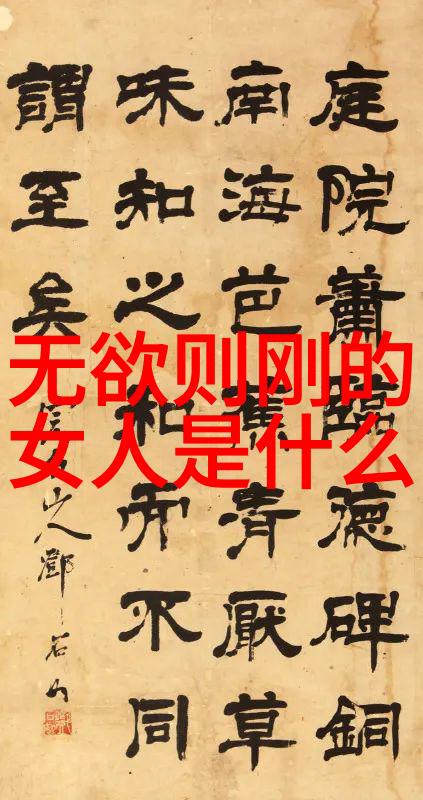 无欲则刚的
女人是什么
庭院蕭臨德碑銅
南海芭蕉清厭草
味知之和而不同
謂至矣
山人鄧石如